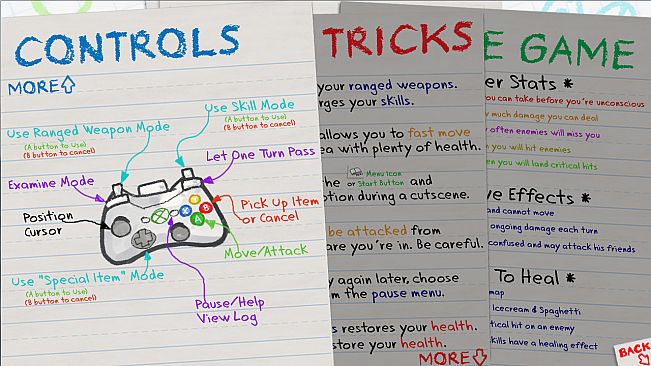 CONTROLS
MORE
Use Skill Mode
(A button to Use)
(B button to cancel)
Use Ranged Weapon Mode
(A button to Use)
(B button to cancel)
Let One Turn Pass
Examine Mode
Pick Up Item
or Cancel
Position
Cursor
X
Y
B
A
Move/Attack
Use "Special Item" Mode
(A button to Use)
(B button to cancel)
Pause/Help
View Log
TRICKS
your ranged weapons.
rges your skills.
allows you to fast move
ea with plenty of health.
he Menu Icon
or Start button and
otion during a cutscene.
be attacked from
are you're in. Be careful.
y again later, choose
m the pause menu.
s restores your health.
store your health.
MORE
E GAME
er Stats *
ou can take before you're unconscious
much damage you can deal
often enemies will miss you
n you will hit enemies
en you will land critical hits
ve Effects *
and cannot move
ongoing damage each turn
confused and may attack his friends
To Heal *
map
Icecream & Spaghetti
tical hit on an enemy
kills have a healing effect
BACK